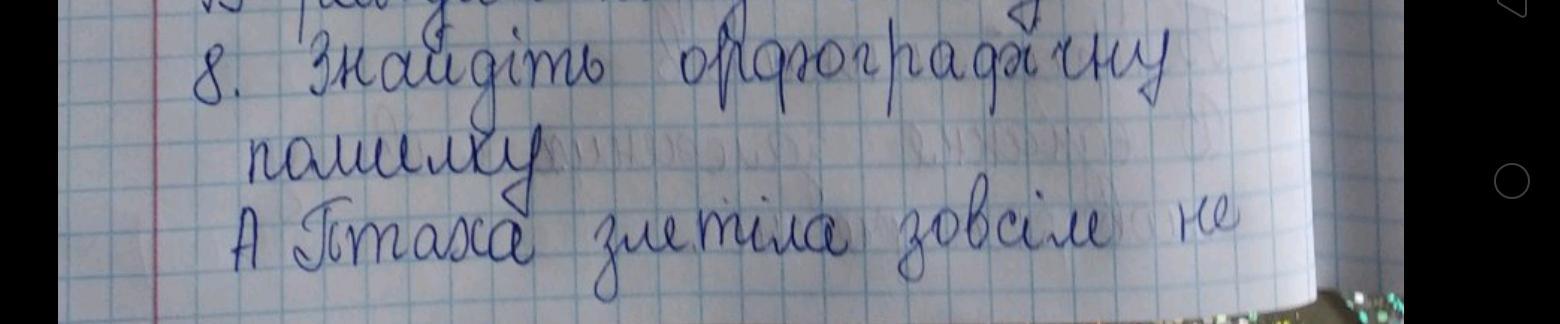 8. Знайдіть орфографічну
помилку
А Птаха злетіла зовсім не